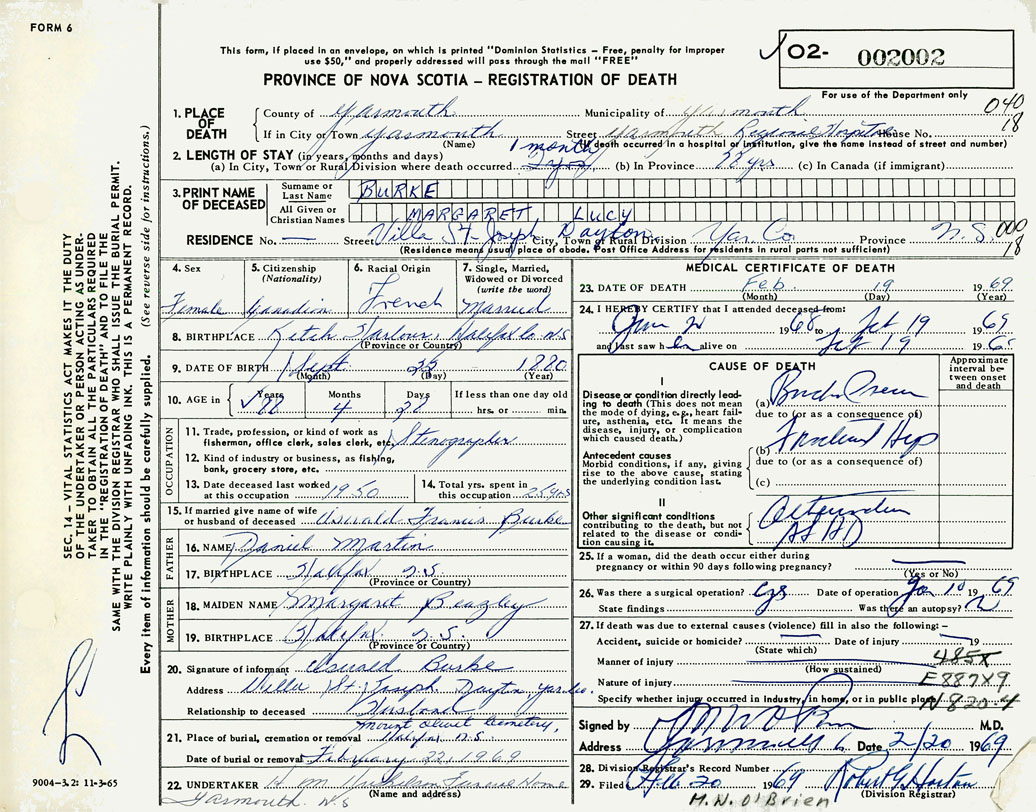 FORM 6
This form, if placed in an envelope, on which is printed "Dominion Statistics – Free, penalty for improper
use $50," and properly addressed will pass through the mail "FREE"
PROVINCE OF NOVA SCOTIA – REGISTRATION OF DEATH
O2- 002002
For use of the Department only
040
18
1. PLACE OF DEATH
County of Yarmouth Municipality of Yarmouth
If in City or Town Yarmouth Street Yarmouth Regional Hospital House No.
(Name) (If death occurred in a hospital or institution, give the name instead of street and number)
2. LENGTH OF STAY (in years, months and days) 1 month
(a) In City, Town or Rural Division where death occurred (b) In Province 88 yrs (c) In Canada (if immigrant)
3. PRINT NAME OF DECEASED
Surname or Last Name BURKE
All Given or Christian Names MARGARET LUCY
RESIDENCE No. — Street Villa St. Joseph Dayton City, Town or Rural Division Yar. Co. Province N.S. 000
18
(Residence means usual place of abode. Post Office Address for residents in rural parts not sufficient)
4. Sex Female
5. Citizenship (Nationality) Canadian
6. Racial Origin French
7. Single, Married, Widowed or Divorced (write the word) Married
8. BIRTHPLACE Ketch Harbour, Halifax Co. N.S
(Province or Country)
9. DATE OF BIRTH Sept. 22 1880
(Month) (Day) (Year)
10. AGE in Years 88 Months 4 Days 28 If less than one day old
hrs. or min.
OCCUPATION
11. Trade, profession, or kind of work as fisherman, office clerk, sales clerk, etc. Stenographer
12. Kind of industry or business, as fishing, bank, grocery store, etc.
13. Date deceased last worked at this occupation 1950
14. Total yrs. spent in this occupation 25 yrs
15. If married give name of wife or husband of deceased Oswald Francis Burke
FATHER
16. NAME Daniel Martin
17. BIRTHPLACE Halifax N.S.
(Province or Country)
MOTHER
18. MAIDEN NAME Margaret Beazley
19. BIRTHPLACE Halifax N.S.
(Province or Country)
20. Signature of informant Oswald Burke
Address Villa St. Joseph Dayton, Yar. Co.
Relationship to deceased Husband
Mount Olivet Cemetery,
21. Place of burial, cremation or removal Halifax N.S.
Date of burial or removal February 22, 1969
22. UNDERTAKER H. M. Huskilson Funeral Home
(Name and address)
Yarmouth N.S
MEDICAL CERTIFICATE OF DEATH
23. DATE OF DEATH Feb. 19 1969
(Month) (Day) (Year)
24. I HEREBY CERTIFY that I attended deceased from:
1968 to Feb 19 1969
and last saw her alive on Feb 19 196
CAUSE OF DEATH
Approximate interval between onset and death
I
Disease or condition directly leading to death (This does not mean the mode of dying, e.g., heart failure, asthenia, etc. It means the disease, injury, or complication which caused death.)
(a)
due to (or as a consequence of)
Antecedent causes
Morbid conditions, if any, giving rise to the above cause, stating the underlying condition last.
(b) Fractured Hip
due to (or as a consequence of)
(c)
II
Other significant conditions
contributing to the death, but not related to the disease or condition causing it.
ASHD
25. If a woman, did the death occur either during
pregnancy or within 90 days following pregnancy?
(Yes or No)
26. Was there a surgical operation? yes Date of operation Jan 10 1969
State findings Was there an autopsy?
27. If death was due to external causes (violence) fill in also the following: –
Accident, suicide or homicide? Date of injury 19
(State which)
Manner of injury 485X
(How sustained)
Nature of injury E887X9
Specify whether injury occurred in industry, in home, or in public place N820.4
Signed by M.D.
Address Date 2/20 1969
28. Division Registrar's Record Number
29. Filed Feb. 20 1969 Robert G Horton
(Division Registrar)
M.W. O'Brien
SEC. 14 – VITAL STATISTICS ACT MAKES IT THE DUTY
OF THE UNDERTAKER OR PERSON ACTING AS UNDER-
TAKER TO OBTAIN ALL THE PARTICULARS REQUIRED
IN THE "REGISTRATION OF DEATH" AND TO FILE THE
SAME WITH THE DIVISION REGISTRAR WHO SHALL ISSUE THE BURIAL PERMIT.
WRITE PLAINLY WITH UNFADING INK. THIS IS A PERMANENT RECORD.
Every item of information should be carefully supplied. (See reverse side for instructions.)
9004-3.2: 11-3-65